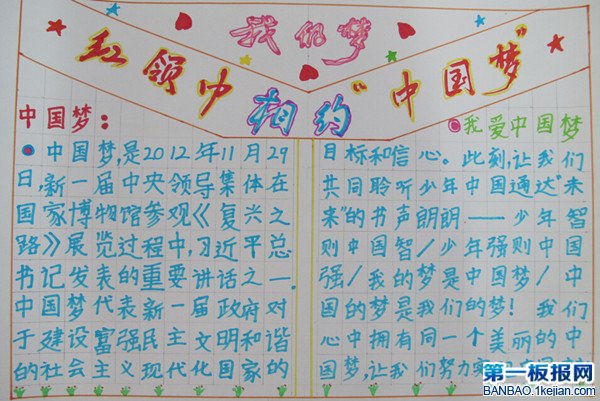 我的梦
红领巾相约“中国梦”
中国梦：
中国梦，是2012年11月29
日，新一届中央领导集体在
国家博物馆参观《复兴之
路》展览过程中，习近平总
书记发表的重要讲话之一。
中国梦代表新一届政府对
于建设富强民主文明和谐
的社会主义现代化国家的
我爱中国梦
目标和信心。此刻，让我们
共同聆听少年中国通达“未
来”的书声朗朗——少年智
则中国智/少年强则中国
强/我的梦是中国梦/中
国的梦是我们的梦！我们
心中拥有同一个美丽的中
国梦，让我们努力
第一板报网
BANBAO.1kejian.com